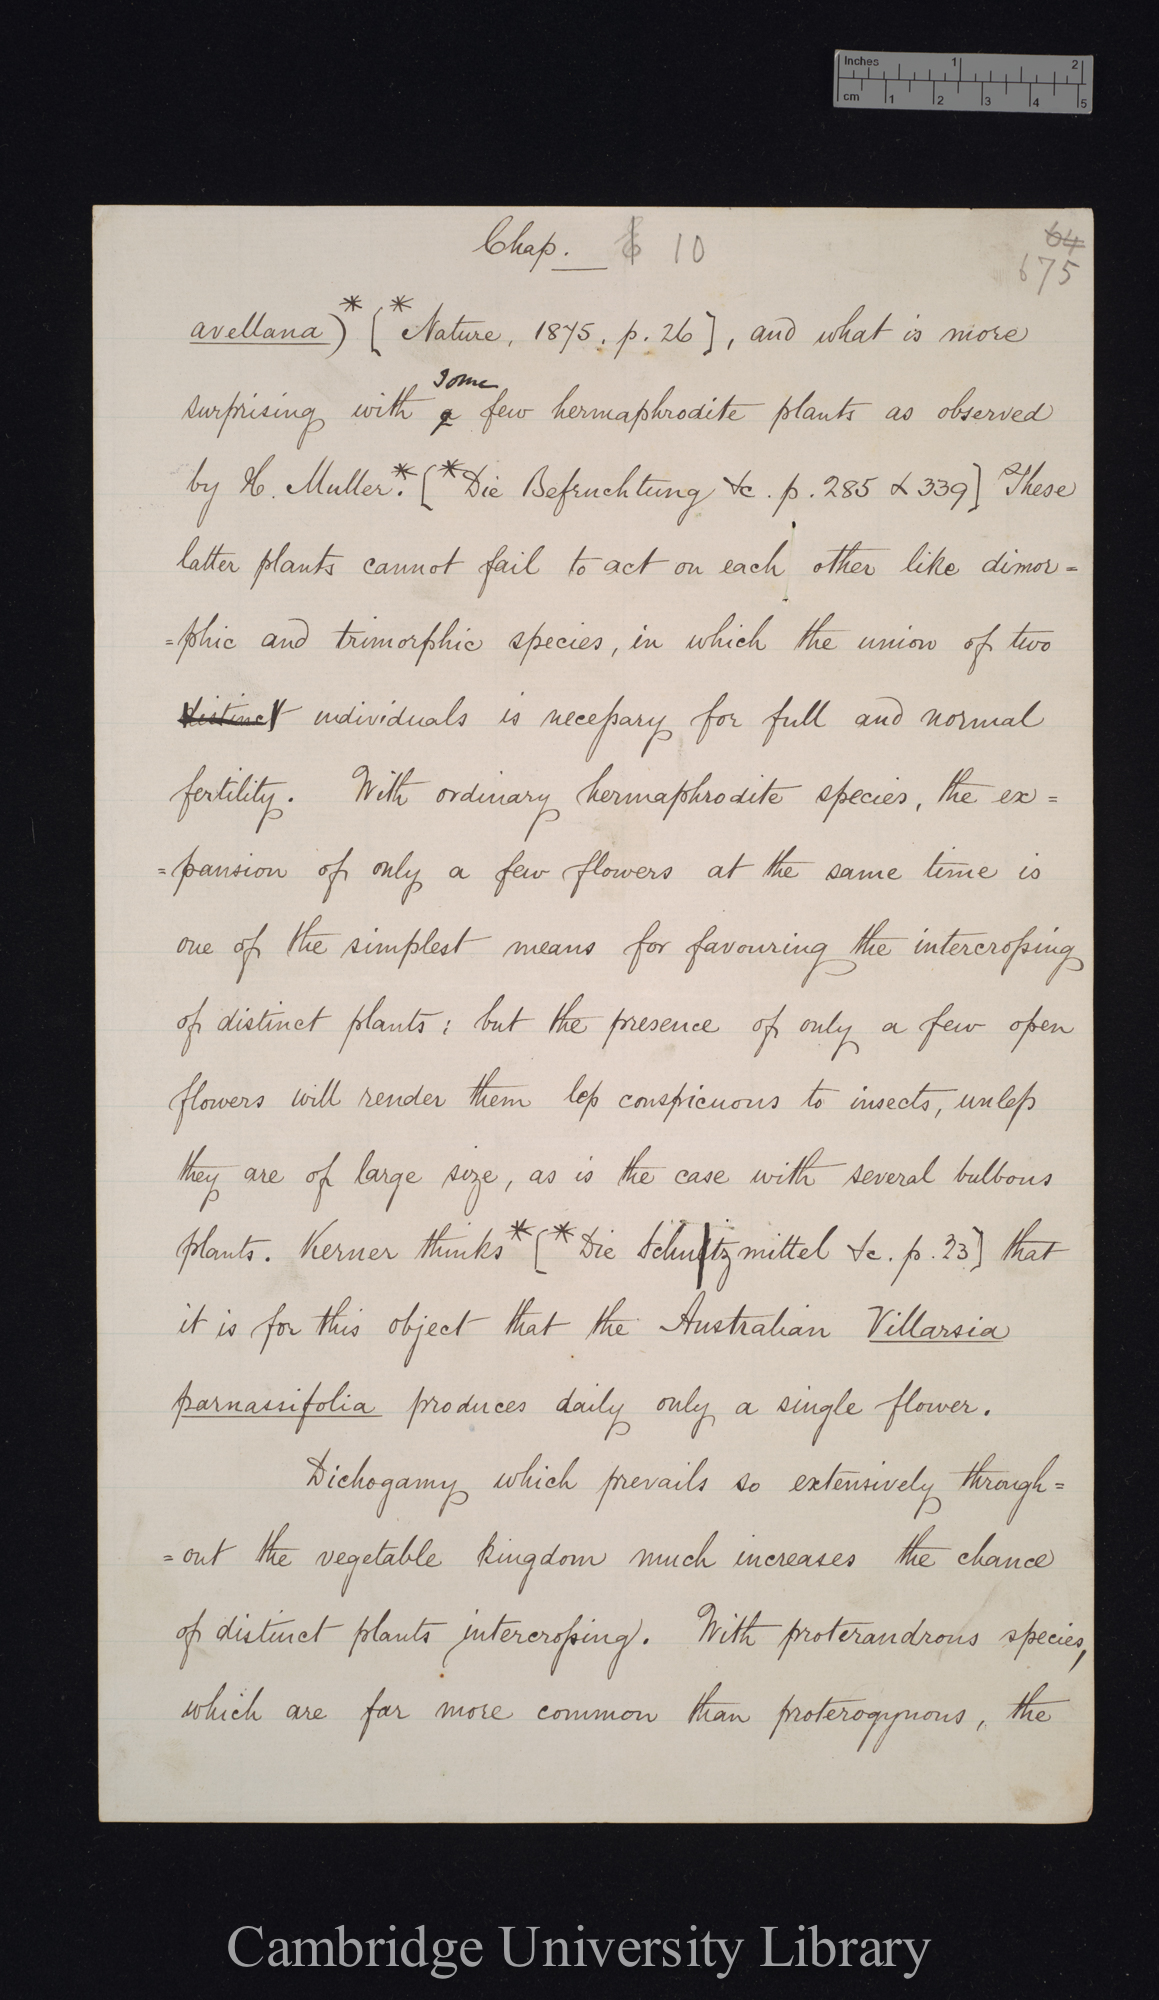 Inches 1 2
cm 1 2 3 4 5
Chap. 6 10
64
675
avellana)* [* Nature, 1875. p. 26], and what is more
some
surprising with a few hermaphrodite plants as observed
by H. Muller.* [* Die Befruchtung &c. p. 285 & 339] These
latter plants cannot fail to act on each other like dimor=
=phic and trimorphic species, in which the union of two
distinct individuals is necessary for full and normal
fertility. With ordinary hermaphrodite species, the ex=
=pansion of only a few flowers at the same time is
one of the simplest means for favouring the intercrossing
of distinct plants; but the presence of only a few open
flowers will render them less conspicuous to insects, unless
they are of large size, as is the case with several bulbous
plants. Kerner thinks* [* Die Schutzmittel &c. p. 23] that
it is for this object that the Australian Villarsia
parnassifolia produces daily only a single flower.
Dichogamy which prevails so extensively through=
=out the vegetable kingdom much increases the chance
of distinct plants intercrossing. With proterandrous species,
which are far more common than proterogynous, the
Cambridge University Library